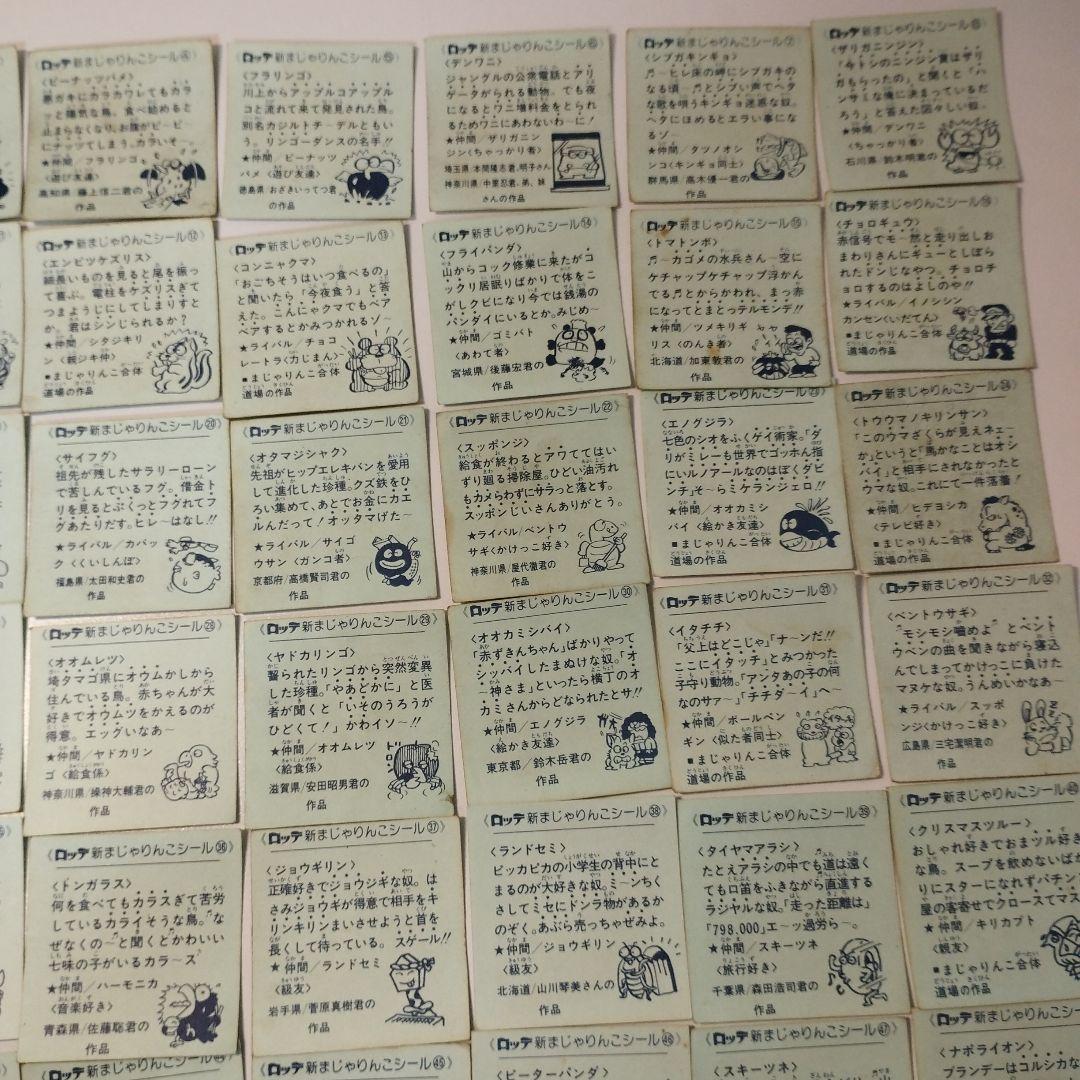 ロッテ 新まじゃりんこシール④
〈ピーナッツバメ〉
悪ガキにカラカワレてもカラ
ッと陽気な鳥。食べ始めると
止まらなくなり、お腹がピーピー
にナッツてしまう。カラいそ〜
★仲間／フラリンゴ
〈遊び友達〉
高知県 藤上信二君の
作品
ロッテ 新まじゃりんこシール⑤
〈フラリンゴ〉
川上からアップルコアップル
コと流れて来て発見された鳥。
別名カジルトチ〜デルともい
う。リンゴーダンスの名手!!
★仲間／ピーナッツ
バメ〈遊び友達〉
徳島県 おざきいってつ君
の作品
ロッテ 新まじゃりんこシール⑥
〈デンワニ〉
ジャングルの公衆電話とアリ
ゲータがられる動物。でも夜
になるとワニ増料金をとられ
るためワニにあわないわ〜に!
★仲間／ザリガニン
ジン〈ちゃっかり者〉
埼玉県/本間隆志君、明子さん
神奈川県/中里忍君、弟、妹
さんの作品
ロッテ 新まじゃりんこシール⑦
〈シブガキンギョ〉
♬ーヒレ床の岬にシブガキの
なる頃ー♬とシブい声でヘタ
な歌を唄うキンギョ迷惑な奴。
ヘタにほめるとエラい事にな
るゾ〜
★仲間／タツノオシ
ンコ〈キンギョ同士〉
群馬県/高木優一君の
作品
ロッテ 新まじゃりんこシール⑧
〈ザリガニンジン〉
「今トシのニンジン賞はザリ
ガもらったの」と聞くと「ハ
ンサミな僕に決まっているだ
ろう」と答えた図々しい奴。
★仲間／デンワニ
〈ちゃっかり者〉
石川県 鈴木明君の
ロッテ 新まじゃりんこシール⑫
〈エンピツケズリス〉
細長いものを見ると尾を振っ
て喜ぶ。電柱をケズリスぎて
つまようじにしてしまりすと
か。君はシンじられるか?
★仲間／シタジキリ
ン〈親ジキ仲〉
■まじゃりんこ合体
道場の作品
ロッテ 新まじゃりんこシール⑬
〈コンニャクマ〉
「おごちそうはいつ食べるの」
と聞いたら「今夜食う」と答
えた。こんにゃクマでもベア
ベアするとかみつかれるゾ〜
★ライバル／チョコ
レートラ〈力じまん〉
■まじゃりんこ合体
道場の作品
ロッテ 新まじゃりんこシール⑭
〈フライパンダ〉
山からコック修業に来たがコ
ックリ居眠りばかりで体をこ
がしクビになり今では銭湯の
バンダイにいるとか。みじめ〜
★仲間／ゴミバト
〈あわて者〉
宮城県/後藤宏君の
作品
ロッテ 新まじゃりんこシール⑮
〈トマトンボ〉
♬ーカゴメの水兵さん―空に
ケチャップケチャップ浮かん
でる♬とからかわれ、まっ赤
になってとまとっテルモンデ!!
★仲間／ツメキリギ
リス〈のんき者〉
北海道/加東敦君の
作品
ロッテ 新まじゃりんこシール⑯
〈チョロギュウ〉
赤信号でモー然と走り出しお
まわりさんにギューとしぼら
れたドンじなやつ。チョロチ
ョロするのはよしのや!!
★ライバル／イノシシン
カンセン〈いだてん〉
■まじゃりんこ合体
道場の作品
ロッテ 新まじゃりんこシール⑳
〈サイフグ〉
祖先が残したサラリーローン
で苦しんでいるフグ。借金ト
リを見るとぷくっとフグれてフ
グあたりだす。ヒレ〜はなし!!
★ライバル／カバッ
ク〈くいしんぼ〉
福島県/太田和史君の
作品
ロッテ 新まじゃりんこシール㉑
〈オタマジシャク〉
先祖がヒップエレキバンを愛用
して進化した珍種。クズ鉄をひ
ろい集めて、あとでお金にカエ
ルんだって!オッタマげた〜
★ライバル／サイゴ
ウサン〈ガンコ者〉
京都府/高橋賢司君の
作品
ロッテ 新まじゃりんこシール㉒
〈スッポンジ〉
給食が終わるとアワててはい
ずり廻る掃除屋。ひどい油汚れ
もカメらわずにサラっと落とす。
スッポンじいさんありがとう。
★ライバル／ベントウ
サギ〈かけっこ好き〉
神奈川県/屋代徹君の
作品
ロッテ 新まじゃりんこシール㉓
〈エノグジラ〉
七色のシオをふくゲイ術家。「ダ
リがミレーも世界でゴッホん指
にいルノアールなのはぼくダビ
ンチ」そ〜らミケランジェロ!!
★仲間／オオカミシ
バイ〈絵かき友達〉
■まじゃりんこ合体
道場の作品
ロッテ 新まじゃりんこシール㉔
〈トウウマノキリンサン〉
「このウマざくらが見えネェ〜
か」というと「馬かなことはオシ
バイ」と相手にされなかったと
ウマな奴。これにて一件落着!
★仲間／ヒデヨシカ
〈テレビ好き〉
■まじゃりんこ合体
道場の作品
ロッテ 新まじゃりんこシール㉘
〈オオムレツ〉
埼タマゴ県にオウムかしから
住んでいる鳥。赤ちゃんが大
好きでオウムツをかえるのが
得意。エッグいなあ〜
★仲間／ヤドカリン
ゴ〈給食係〉
神奈川県/操神大輔君の
作品
ロッテ 新まじゃりんこシール㉙
〈ヤドカリンゴ〉
齧られたリンゴから突然変異
した珍種。「やあどかに」と医
者が聞くと「いそのうろうが
ひどくて!」かわイソ〜!!
★仲間／オオムレツ
〈給食係〉
滋賀県/安田昭男君の
作品
ロッテ 新まじゃりんこシール㉚
〈オオカミシバイ〉
「赤ずきんちゃん」ばかりやって
「シッパイしたまぬけな奴。「オ
〜神さま」といったら横丁のオ
カミさんからどなられたとサ!!
★仲間／エノグジラ
〈絵かき友達〉
東京都/鈴木岳君の
作品
ロッテ 新まじゃりんこシール㉛
〈イタチチ〉
「父上はどこじゃ」「ナ〜ンだ!!
ここにイタッチ」とみつかった
子守り動物。「アンタあの子の何
なのサァ〜」「チチダ〜イ」へ〜
★仲間／ボールペン
ギン〈似た者同士〉
■まじゃりんこ合体
道場の作品
ロッテ 新まじゃりんこシール㉜
〈ベントウサギ〉
"モシモシ嚙めよ"とベント
ウベンの曲を聞きながら寝込
んでしまってかけっこに負けた
マヌケな奴。うんめいかなあ〜
★ライバル／スッポ
ンジ〈かけっこ好き〉
広島県/三宅潔明君の
作品
ロッテ 新まじゃりんこシール㊱
〈トンガラス〉
何を食べてもカラスぎて苦労
しているカライそうな鳥。♬な
ぜなくの〜♬と聞くとかわいい
七味の子がいるカラ〜ス
★仲間／ハーモニカ
〈音楽好き〉
青森県/佐藤聡君の
作品
ロッテ 新まじゃりんこシール㊲
〈ジョウギリン〉
正確好きでジョウジギな奴。は
さみジョウギが得意で相手をキ
リンキリンまいさせようと首を
長くして待っている。スゲール!!
★仲間／ランドセミ
〈級友〉
岩手県/菅原真樹君の
作品
ロッテ 新まじゃりんこシール㊳
〈ランドセミ〉
ピッカピカの小学生の背中にと
まるのが大好きな奴。ミ〜ンちく
さしてミセにドンラ物があるか
のぞく。あぶら売っちゃぜみよ。
★仲間／ジョウギリン
〈級友〉
北海道/山川琴美さんの
作品
ロッテ 新まじゃりんこシール㊴
〈タイヤマアラシ〉
たとえアラシの中でも道は遠く
ても口笛をふきながら直進する
ラジヤルな奴。「走った距離は」
「798,000」エ〜ッ過労ら〜。
★仲間／スキーツネ
〈旅行好き〉
千葉県/森田浩司君の
作品
ロッテ 新まじゃりんこシール㊵
〈クリスマスツルー〉
おしゃれ好きでおまツル好き
な鳥。スープを飲めないばか
りにスターになれずパチン
屋の客寄せでクロースてマス
★仲間／キリカブト
〈親友〉
■まじゃりんこ合体
道場の作品
ロッテ 新まじゃりんこシール㊹
ロッテ 新まじゃりんこシール㊺
ロッテ 新まじゃりんこシール㊻
〈ピーターパンダ〉
ロッテ 新まじゃりんこシール㊼
〈スキーツネ〉
ロッテ 新まじゃりんこシール
〈ナポライオン〉
ブランデーはコルシカな